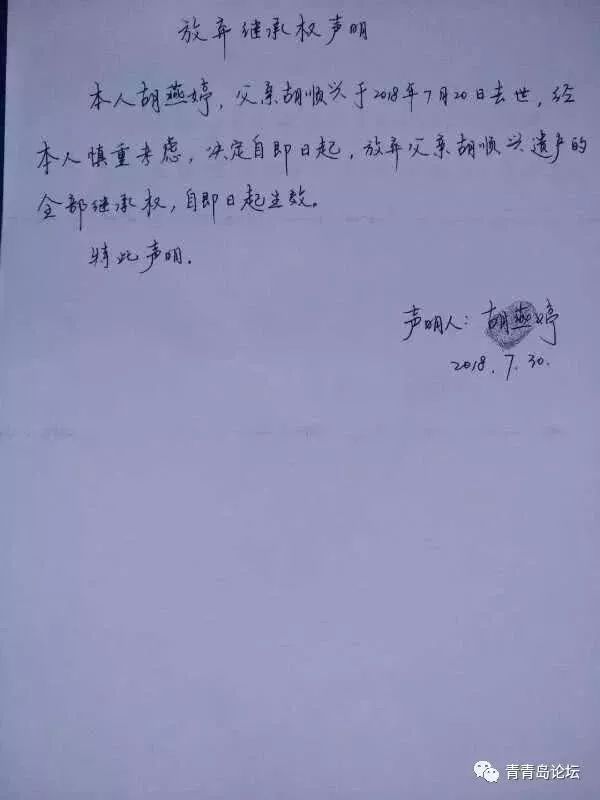 放弃继承权声明
本人胡燕婷，父亲胡顺兴于2018年7月20日去世，经
本人慎重考虑，决定自即日起，放弃父亲胡顺兴遗产的
全部继承权，自即日起生效。
特此声明.
声明人：胡燕婷
2018.7.30.
青青岛论坛